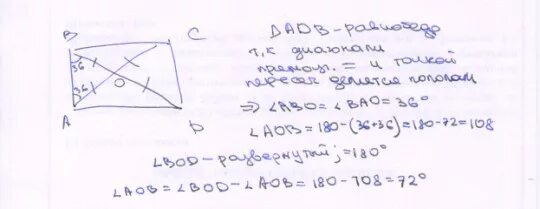 B C
36
36
O
A D
ΔAOB - равнобедр
т.к диагонали
прямоуг. = и точкой
пересеч делятся пополам
⇒ ∠ABO = ∠BAO = 36°
∠AOB = 180-(36+36)=180-72=108
∠BOD - развернутый, = 180°
∠AOB = ∠BOD - ∠AOB = 180 - 108 = 72°